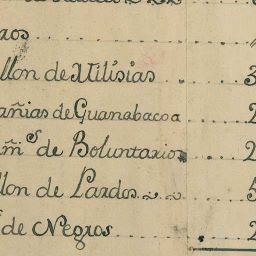 xos
llon de Milisias . . . 3
añias de Guanabacoa . . 2
añ.s de Boluntarios . . . 2
llon de Pardos . . . 5
de Negros . . . . . . 2